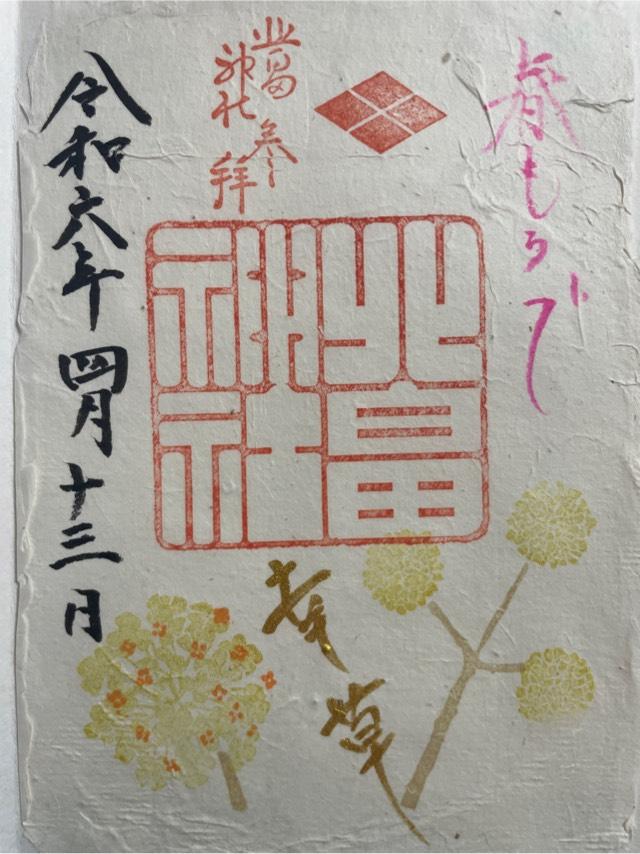 春もうで
北畠
神社
参拝
北畠
神社
幸草
令和六年四月十三日